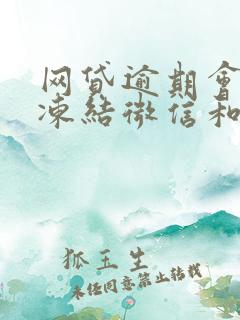 网贷逾期會
凍結微信和
狐玉生
未经同意禁止转载